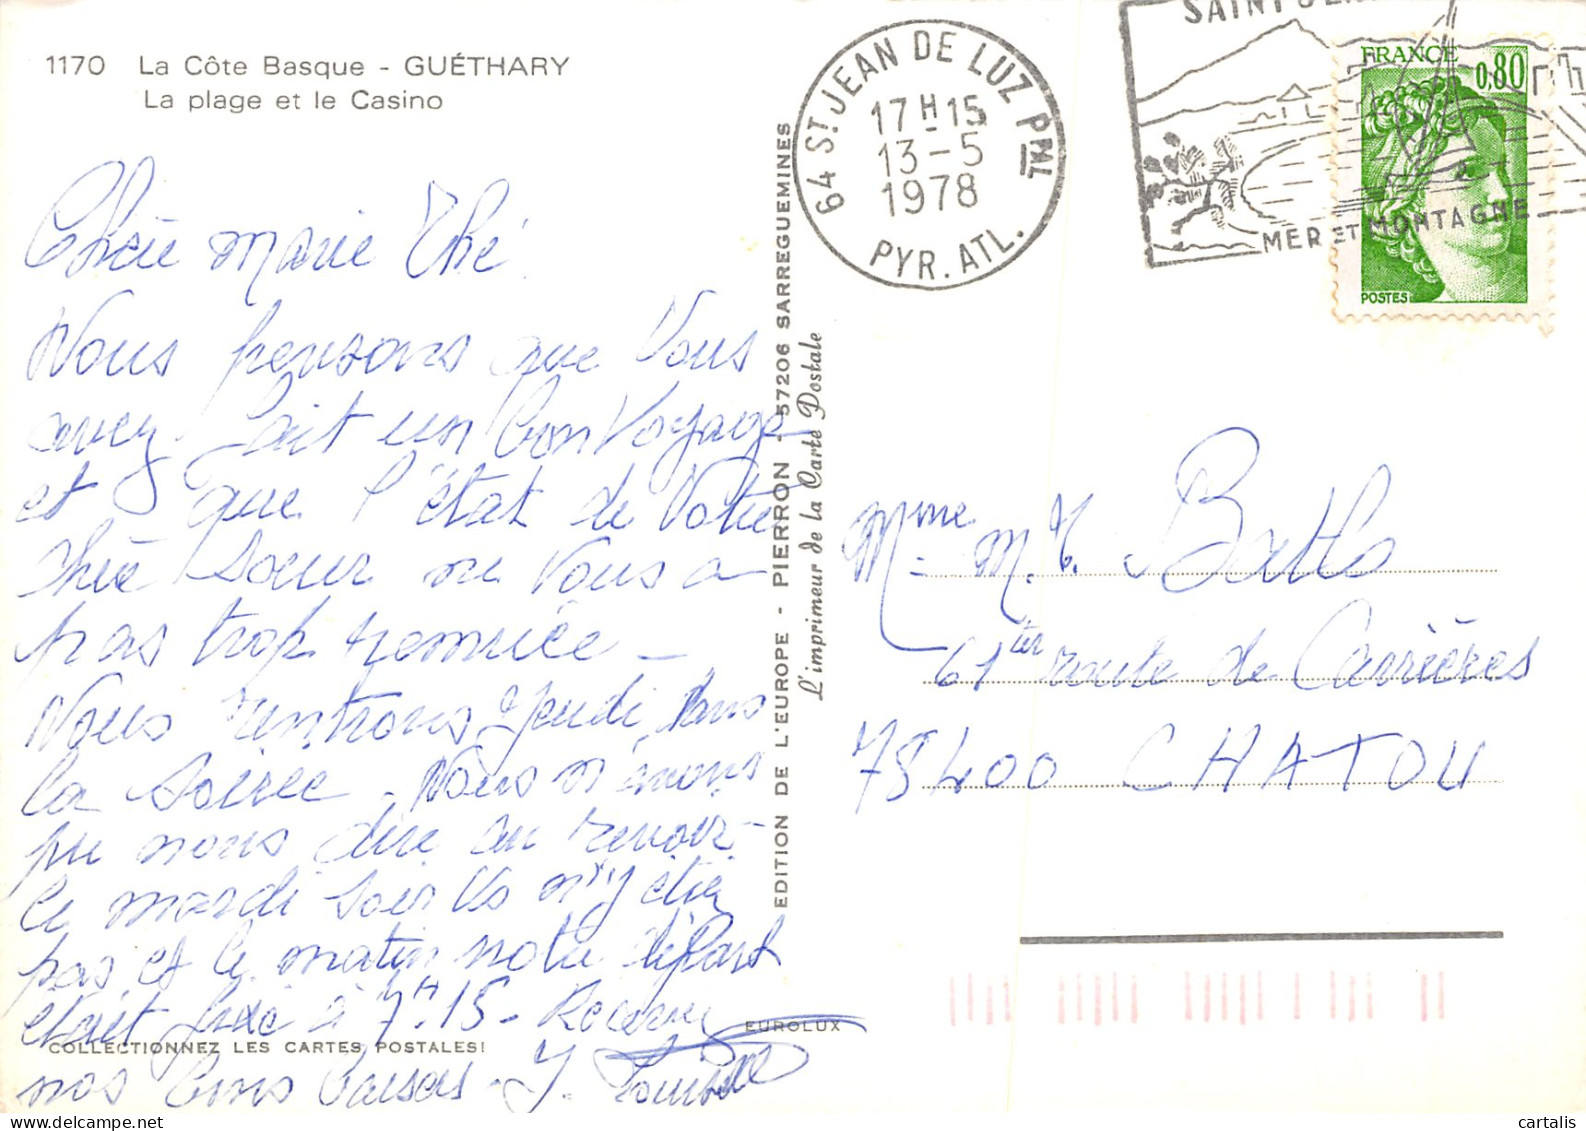 1170 La Côte Basque - GUÉTHARY
La plage et le Casino
Chère Marie Thé
Nous pensons que Vous
avez fait un bon Voyage
et que l'état de Votre
chère Soeur ne Vous a
pas trop
Nous rentrons Jeudi dans
la soirée - Nous n'avons
pu nous dire au revoir -
le mardi soir Vs n'y étiez
pas et le matin notre départ
était fixé à 7H.15 - Recevez
nos bons baisers - J.
COLLECTIONNEZ LES CARTES POSTALES!
EUROLUX
EDITION DE L'EUROPE - PIERRON - 57206 SARREGUEMINES
L'imprimeur de la Carte Postale
64 ST JEAN DE LUZ PAL
17H-15
13-5
1978
PYR. ATL.
MER ET MONTAGNE
FRANCE
0,80
POSTES
Mme M.T.
61ter route de Carrières
78400 CHATOU
cartalis